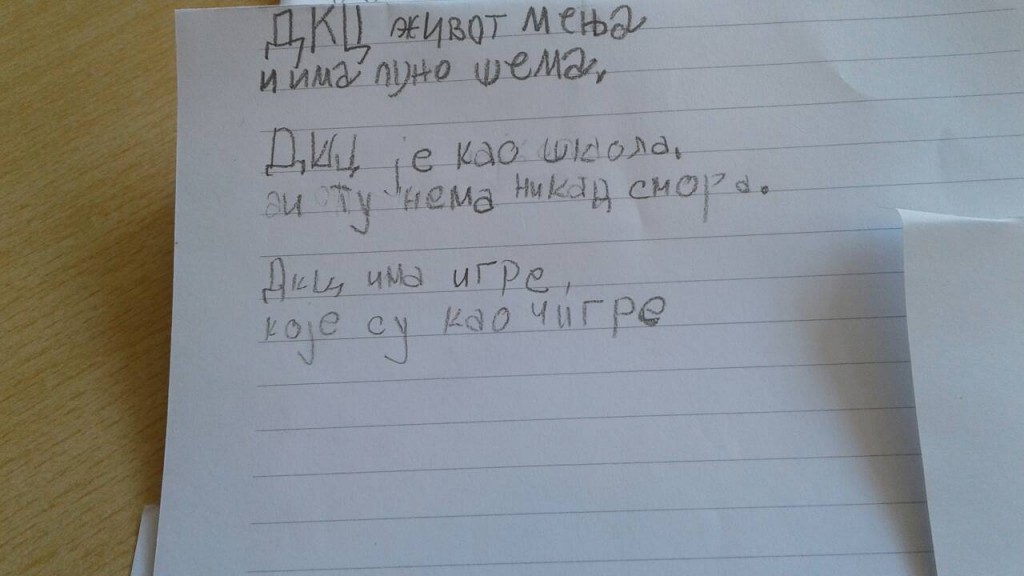 ДКЦ живот мења
и има пуно шема,
ДКЦ је као школа,
али ту нема никад смора.
ДКЦ има игре,
које су као чигре